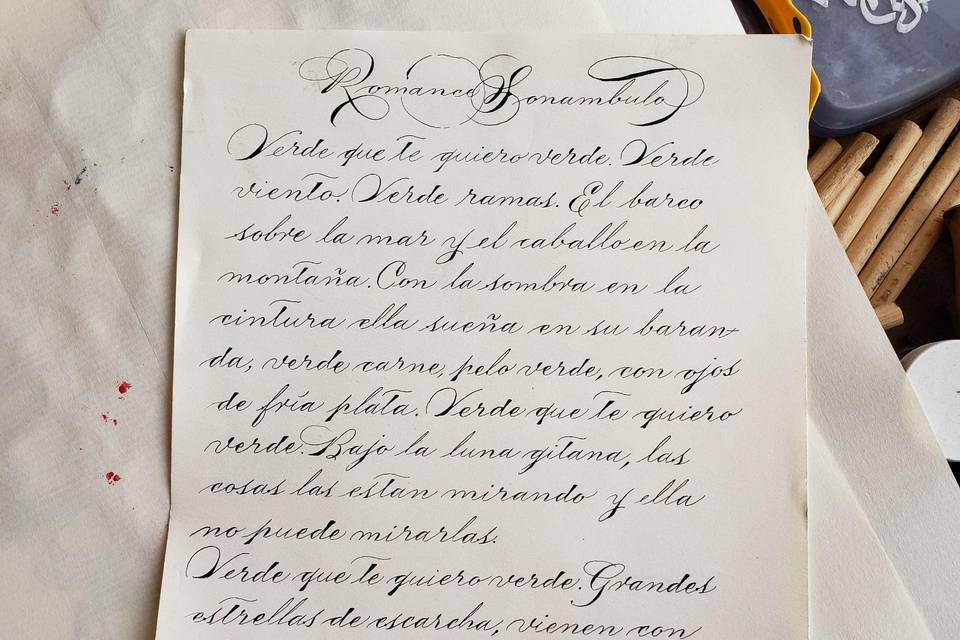 Romance Sonambulo
Verde que te quiero verde. Verde
viento. Verde ramas. El barco
sobre la mar y el caballo en la
montaña. Con la sombra en la
cintura ella sueña en su baran-
da, verde carne, pelo verde, con ojos
de fría plata. Verde que te quiero
verde. Bajo la luna gitana, las
cosas las estan mirando y ella
no puede mirarlas.
Verde que te quiero verde. Grandes
estrellas de escarcha, vienen con